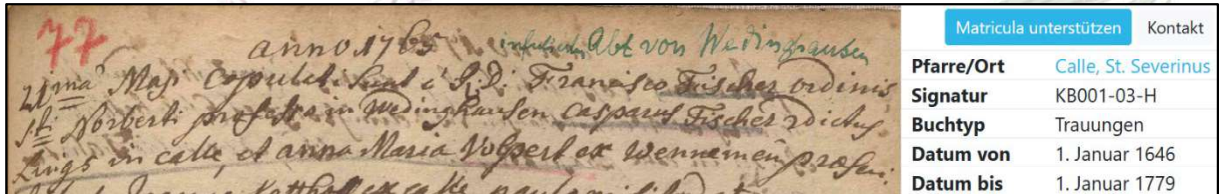 77
anno 1765 Abt von Wedinghausen
21ma Maji copulati sunt a R.D. Francisco Fischer ordinis
sti Norberti professo in Wedinghausen Casparus Fischer dictus
Lings in calle, et anna Maria Volpert ex Wennemen præsen:
ex calle
Matricula unterstützen Kontakt
Pfarre/Ort Calle, St. Severinus
Signatur KB001-03-H
Buchtyp Trauungen
Datum von 1. Januar 1646
Datum bis 1. Januar 1779